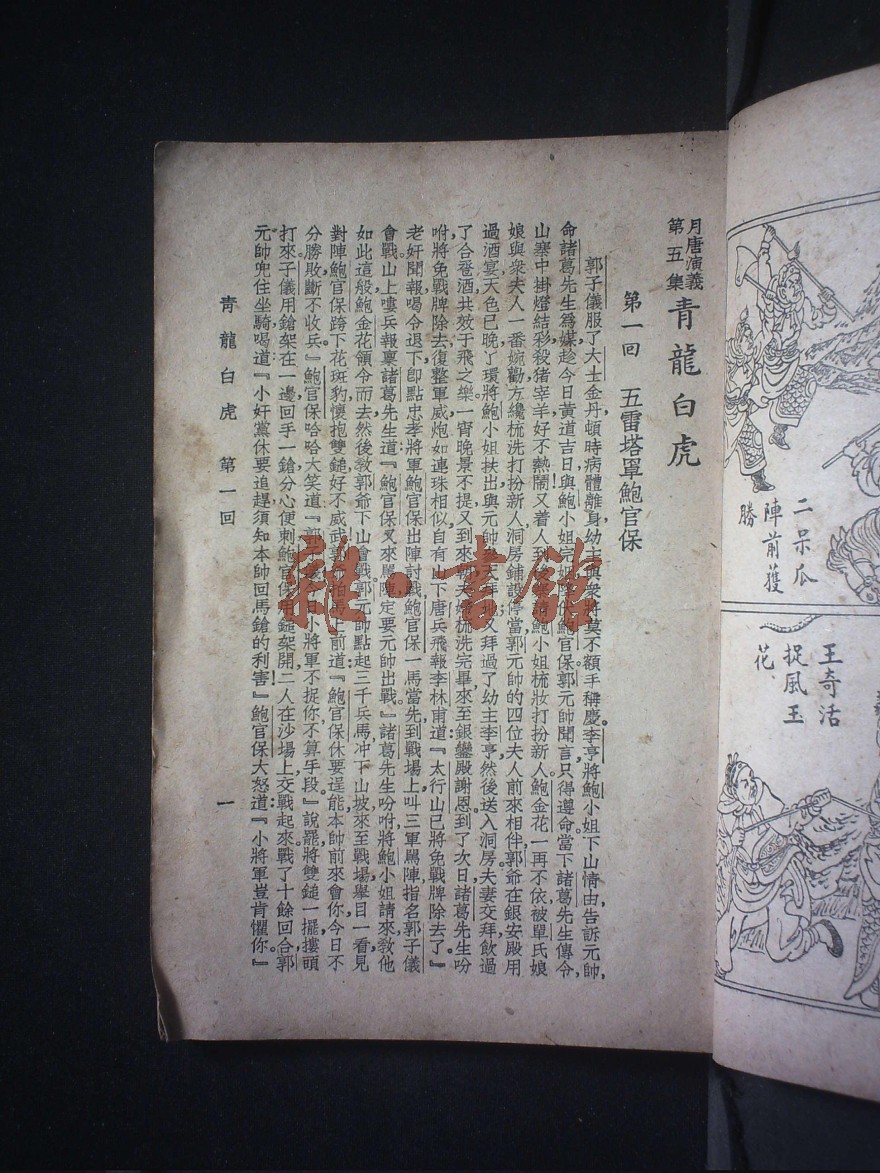 月唐演義
第五集
青龍白虎
第一回 五雷塔罩鮑官保
郭子儀服了大士金丹頓時病體離身幼主與衆將莫不額手稱慶李亨將鮑小姐下山情由告訴元帥，
命諸葛先生爲媒趁今日黃道吉日與鮑小姐完姻降伏鮑官保郭元帥聞言只得遵命當下諸葛先生傳令，
山寨中掛燈結彩殺猪宰羊好不熱鬧又着人到後鮑小姐梳妝打扮新人鮑金花一再不依被單氏娘
娘與衆夫人一番婉勸方纔梳洗打扮新人洞房鋪設停當郭元帥的四位夫人前來相伴郭爺在銀安殿用
過酒宴天色已晚了環將鮑小姐扶出與元帥天拜地又拜過了幼主李亨然後送入洞房夫妻交拜飲過
了合卺酒共效于飛之樂一宵晚景不提又到來朝夫婦梳洗完畢來至銀鑾殿謝恩到了次日諸葛先生吩
咐將免戰牌除去復整軍威炮如連珠相似自有山下唐兵飛報李林甫道：『太行山已將免戰牌除去了』
老奸聞報喝令退下卽點忠孝將軍鮑官保出陣討戰鮑官保一馬當先到戰場上叫三軍罵陣指名郭子儀
會戰山上嘍兵報稟諸葛先生道『鮑官保又來罵陣定要元帥出戰』諸葛先生吩咐將鮑小姐請來敎他
如此這般鮑金花領令而去然後敎郭爺下山會戰郭元帥點起三千兵馬冲下山坡來至戰場舉目一看見
對陣鮑官保跨下花斑豹懷抱雙鎚好不威武郭爺拍馬上前道：『鮑官保休要逞能本帥前來會你今日不
分勝敗斷不收兵』鮑官保哈哈大笑道『郭日小將軍不捉你不算手段』說罷將雙鎚一擺摟頭
打來子儀用鎗架在一邊回手一鎗分心便刺鮑官保用鎚架開二人在沙場上交戰起來戰了十餘回合郭
元帥兜住坐騎喝道『小奸黨休要追趕須知本帥回馬鎗的利害』鮑官保大怒道：『小將軍豈肯懼你』
青龍白虎 第一回 一
二呆瓜
陣前獲
勝
王奇活
捉風玉
花
雜·書館